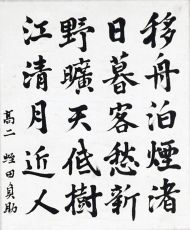 移舟泊煙渚
日暮客愁新
野曠天低樹
江清月近人
高二 蛭田貞助